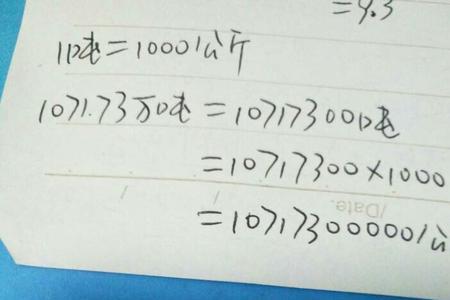 =9.3
1吨=1000公斤
1071.73万吨=10717300吨
=10717300×1000
=10717300000公
Date.